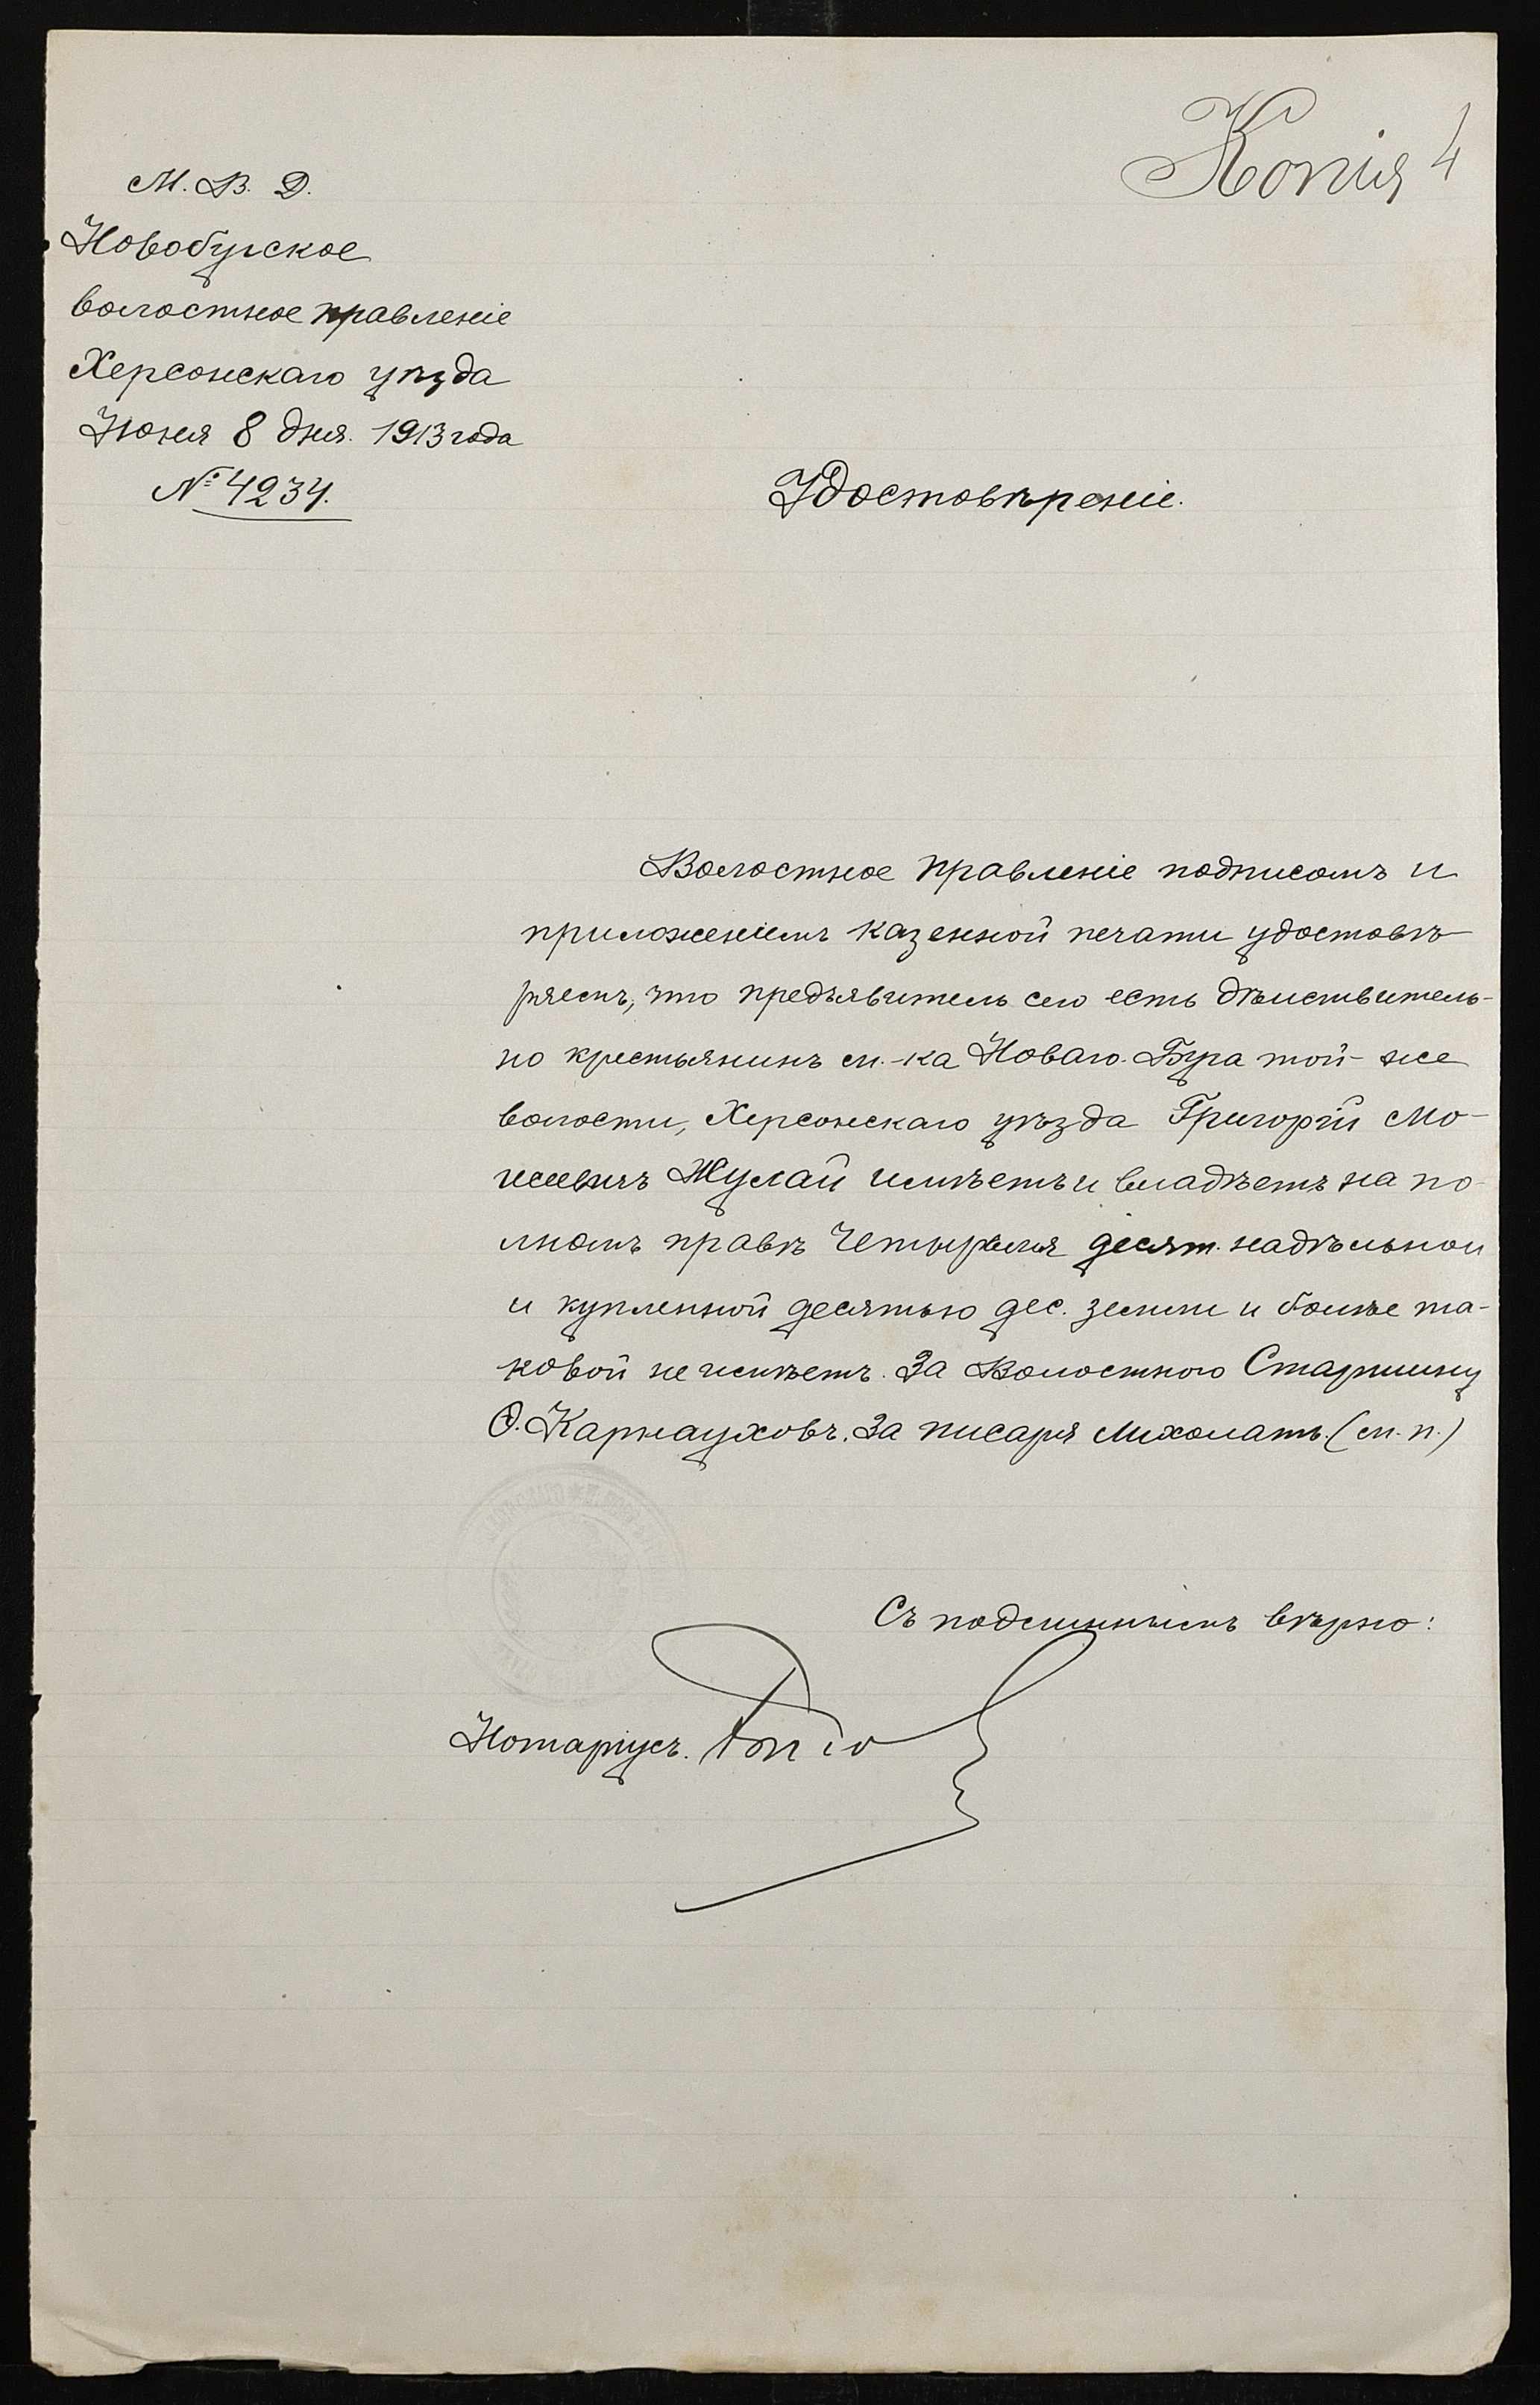 Копія 4
М. В. Д.
Новобугское
волостное правленіе
Херсонскаго уѣзда
Іюня 8 дня. 1913 года
№ 4234.
Удостовѣреніе.
Волостное правленіе подписомъ и
приложеніемъ казенной печати удостовѣ-
ряетъ, что предъявитель сего есть дѣйствитель-
но крестьянинъ м.-ка Новаго-Буга той-же
волости, Херсонскаго уѣзда Григорій Мо-
исеевичъ Жулай имѣетъ и владѣетъ на по-
лномъ правѣ четырьмя десят. надѣльной
и купленной десятью дес. земли и болѣе та-
ковой не имѣетъ. За Волостного Старшину
Ѳ. Карнауховъ. За писаря Лихолатъ. (м. п.)
Съ подлиннымъ вѣрно:
Нотаріусъ.